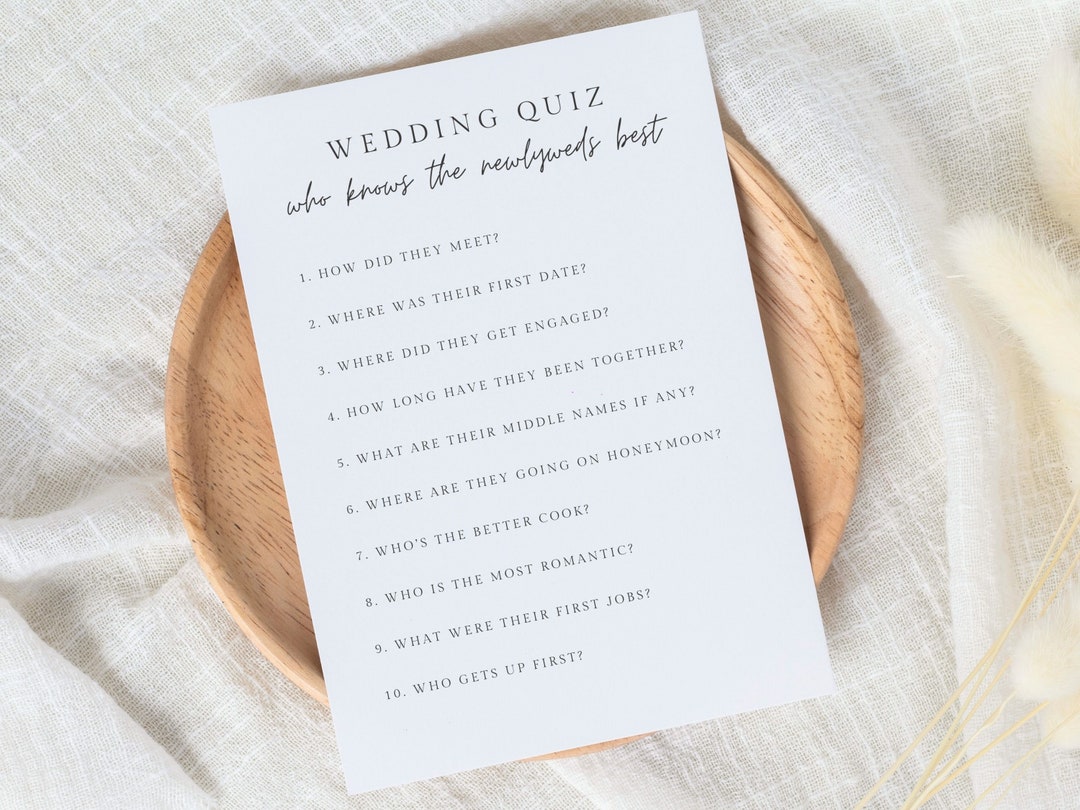 WEDDING QUIZ
who knows the newlyweds best
1. HOW DID THEY MEET?
2. WHERE WAS THEIR FIRST DATE?
3. WHERE DID THEY GET ENGAGED?
4. HOW LONG HAVE THEY BEEN TOGETHER?
5. WHAT ARE THEIR MIDDLE NAMES IF ANY?
6. WHERE ARE THEY GOING ON HONEYMOON?
7. WHO'S THE BETTER COOK?
8. WHO IS THE MOST ROMANTIC?
9. WHAT WERE THEIR FIRST JOBS?
10. WHO GETS UP FIRST?